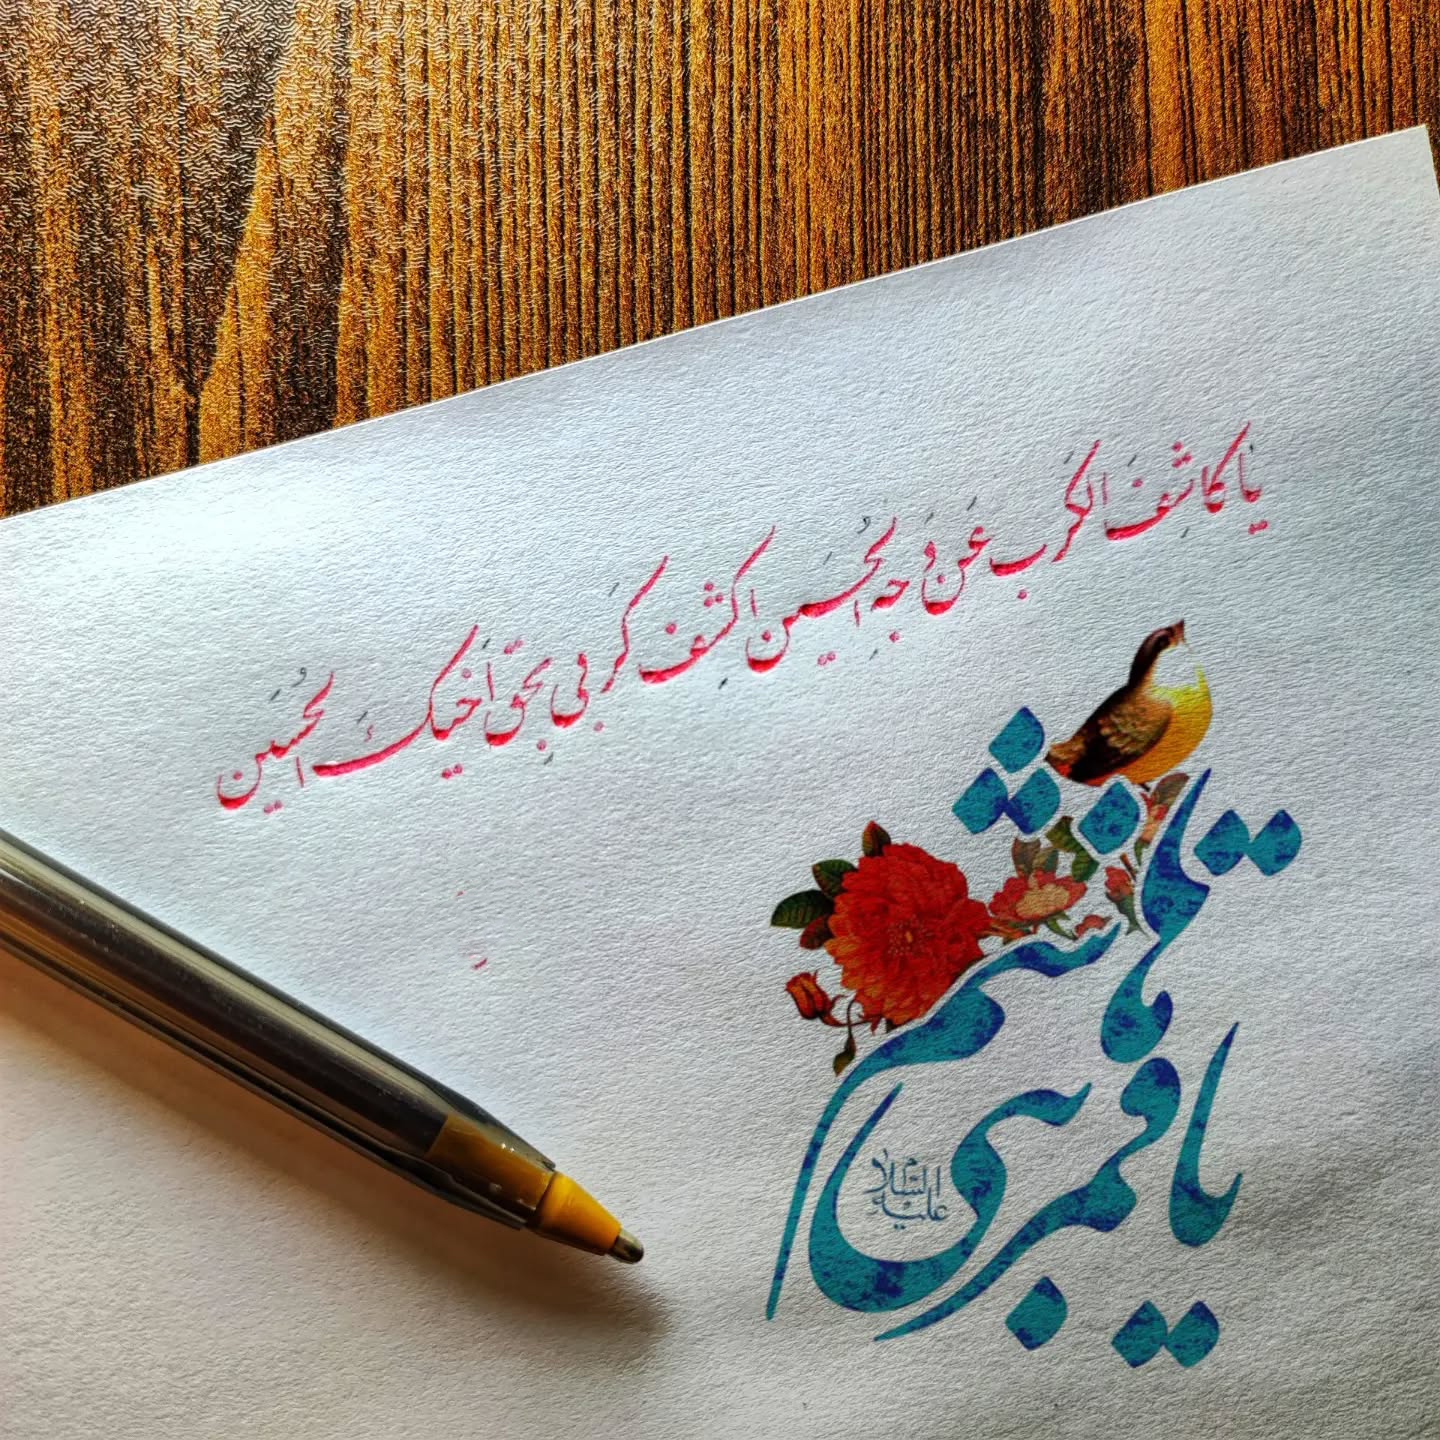 یا کاشِفَ الکَرب عَن وَجهِ الحُسَین اکشِف کَربی بِحَقِّ اَخیکَ الحُسَین
یا قمر بنی هاشم
علیه السلام